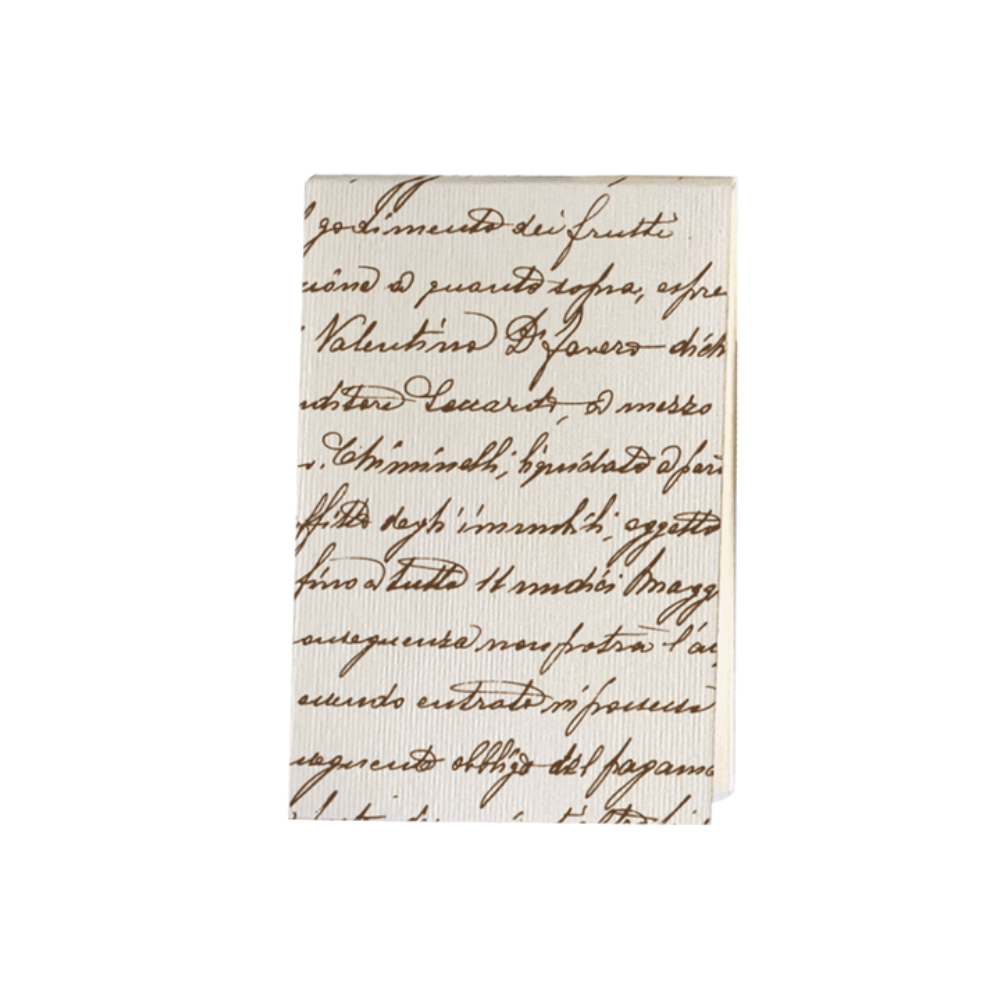 godimento dei frutti
zione a quanto sopra, espre
Valentino D. Favero dich
nditore Leccardi, a mezzo
Chiminelli, liquidato a
ffitto degli immobili, oggetto
fino a tutto 11 undici Magg
onseguenza non potrà l'a
essendo entrato in possesso
seguente obbligo del pagame